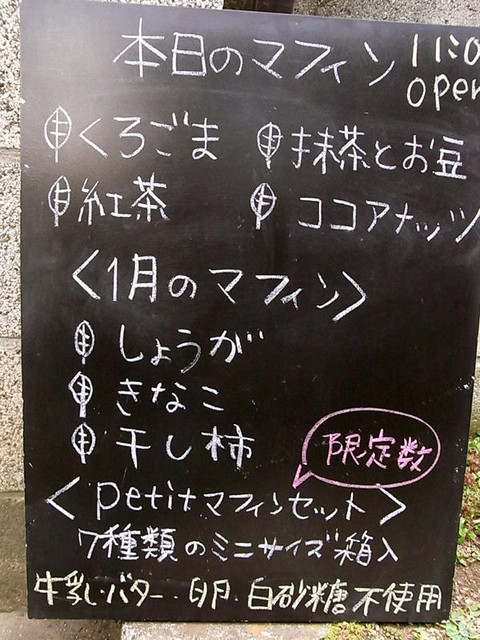 本日のマフィン
11:0
open
くろごま
抹茶とお豆
紅茶
ココアナッツ
〈1月のマフィン〉
しょうが
きなこ
干し柿
限定数
〈petitマフィンセット〉
7種類のミニサイズ箱入
牛乳・バター・卵・白砂糖不使用